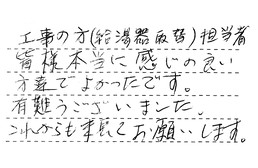 工事の方(給湯器取替)担当者
皆様本当に感じの良い
方達でよかったです。
有難うございました。
これからも末長くお願いします。